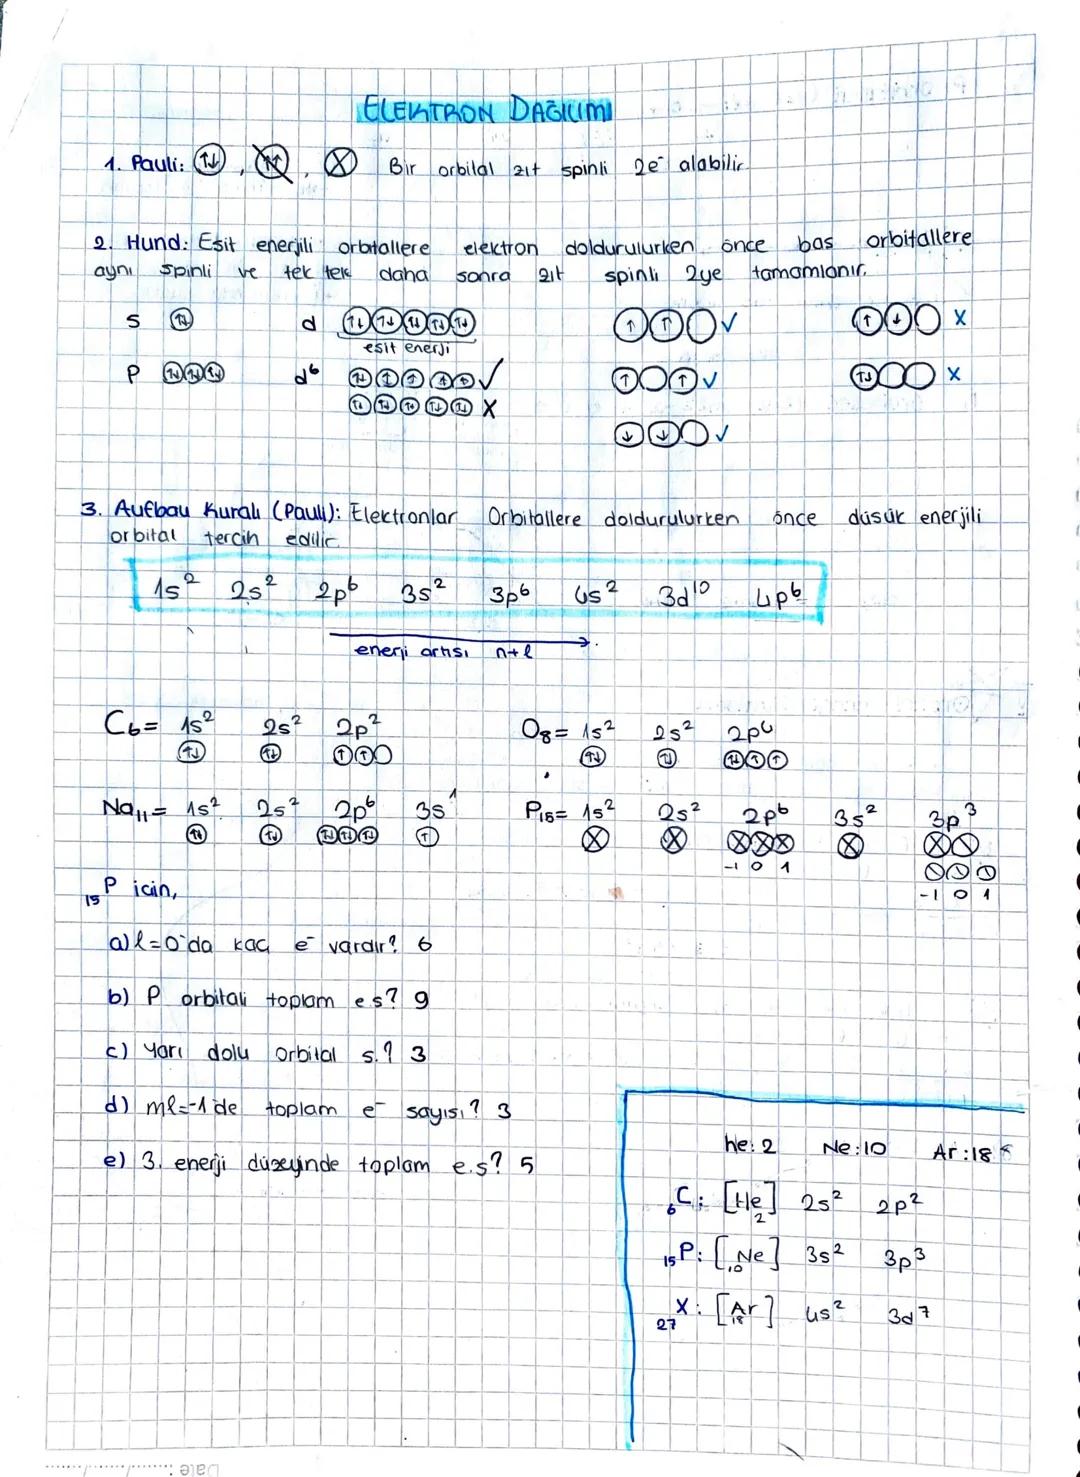 ELEKTRON DAĞILIMI
1. Pauli: ⇅, ⇈, ⊗ Bir orbital zıt spinli 2e⁻ alabilir.
2. Hund: Eşit enerjili orbitallere elektron doldurulurken önce boş orbitallere
aynı spinli ve tek tek daha sonra zıt spinli 2ye tamamlanır.
S d ✓ X
eşit enerji
P d⁶ ✓ ✓ X
X
✓
3. Aufbau Kuralı (Pauli): Elektronlar Orbitallere doldurulurken önce düşük enerjili
orbital tercih edilir.
1s² 2s² 2p⁶ 3s² 3p⁶ 4s² 3d¹⁰ 4p⁶
enerji artışı n+l
C₆= 1s² 2s² 2p² O₈= 1s² 2s² 2p⁴
Na₁₁= 1s² 2s² 2p⁶ 3s¹ P₁₅= 1s² 2s² 2p⁶ 3s² 3p³
-1 0 1
-1 0 1
₁₅P için,
a) l=0'da kaç e⁻ vardır? 6
b) P orbitali toplam e s? 9
c) Yarı dolu orbital s.? 3
d) ml=-1'de toplam e⁻ sayısı? 3
e) 3. enerji düzeyinde toplam e.s? 5
he: 2 Ne:10 Ar:18
₆C: [He]₂ 2s² 2p²
₁₅P: [₁₀Ne] 3s² 3p³
₂₇X: [Ar]₁₈ 4s² 3d⁷
Date :......../......../........